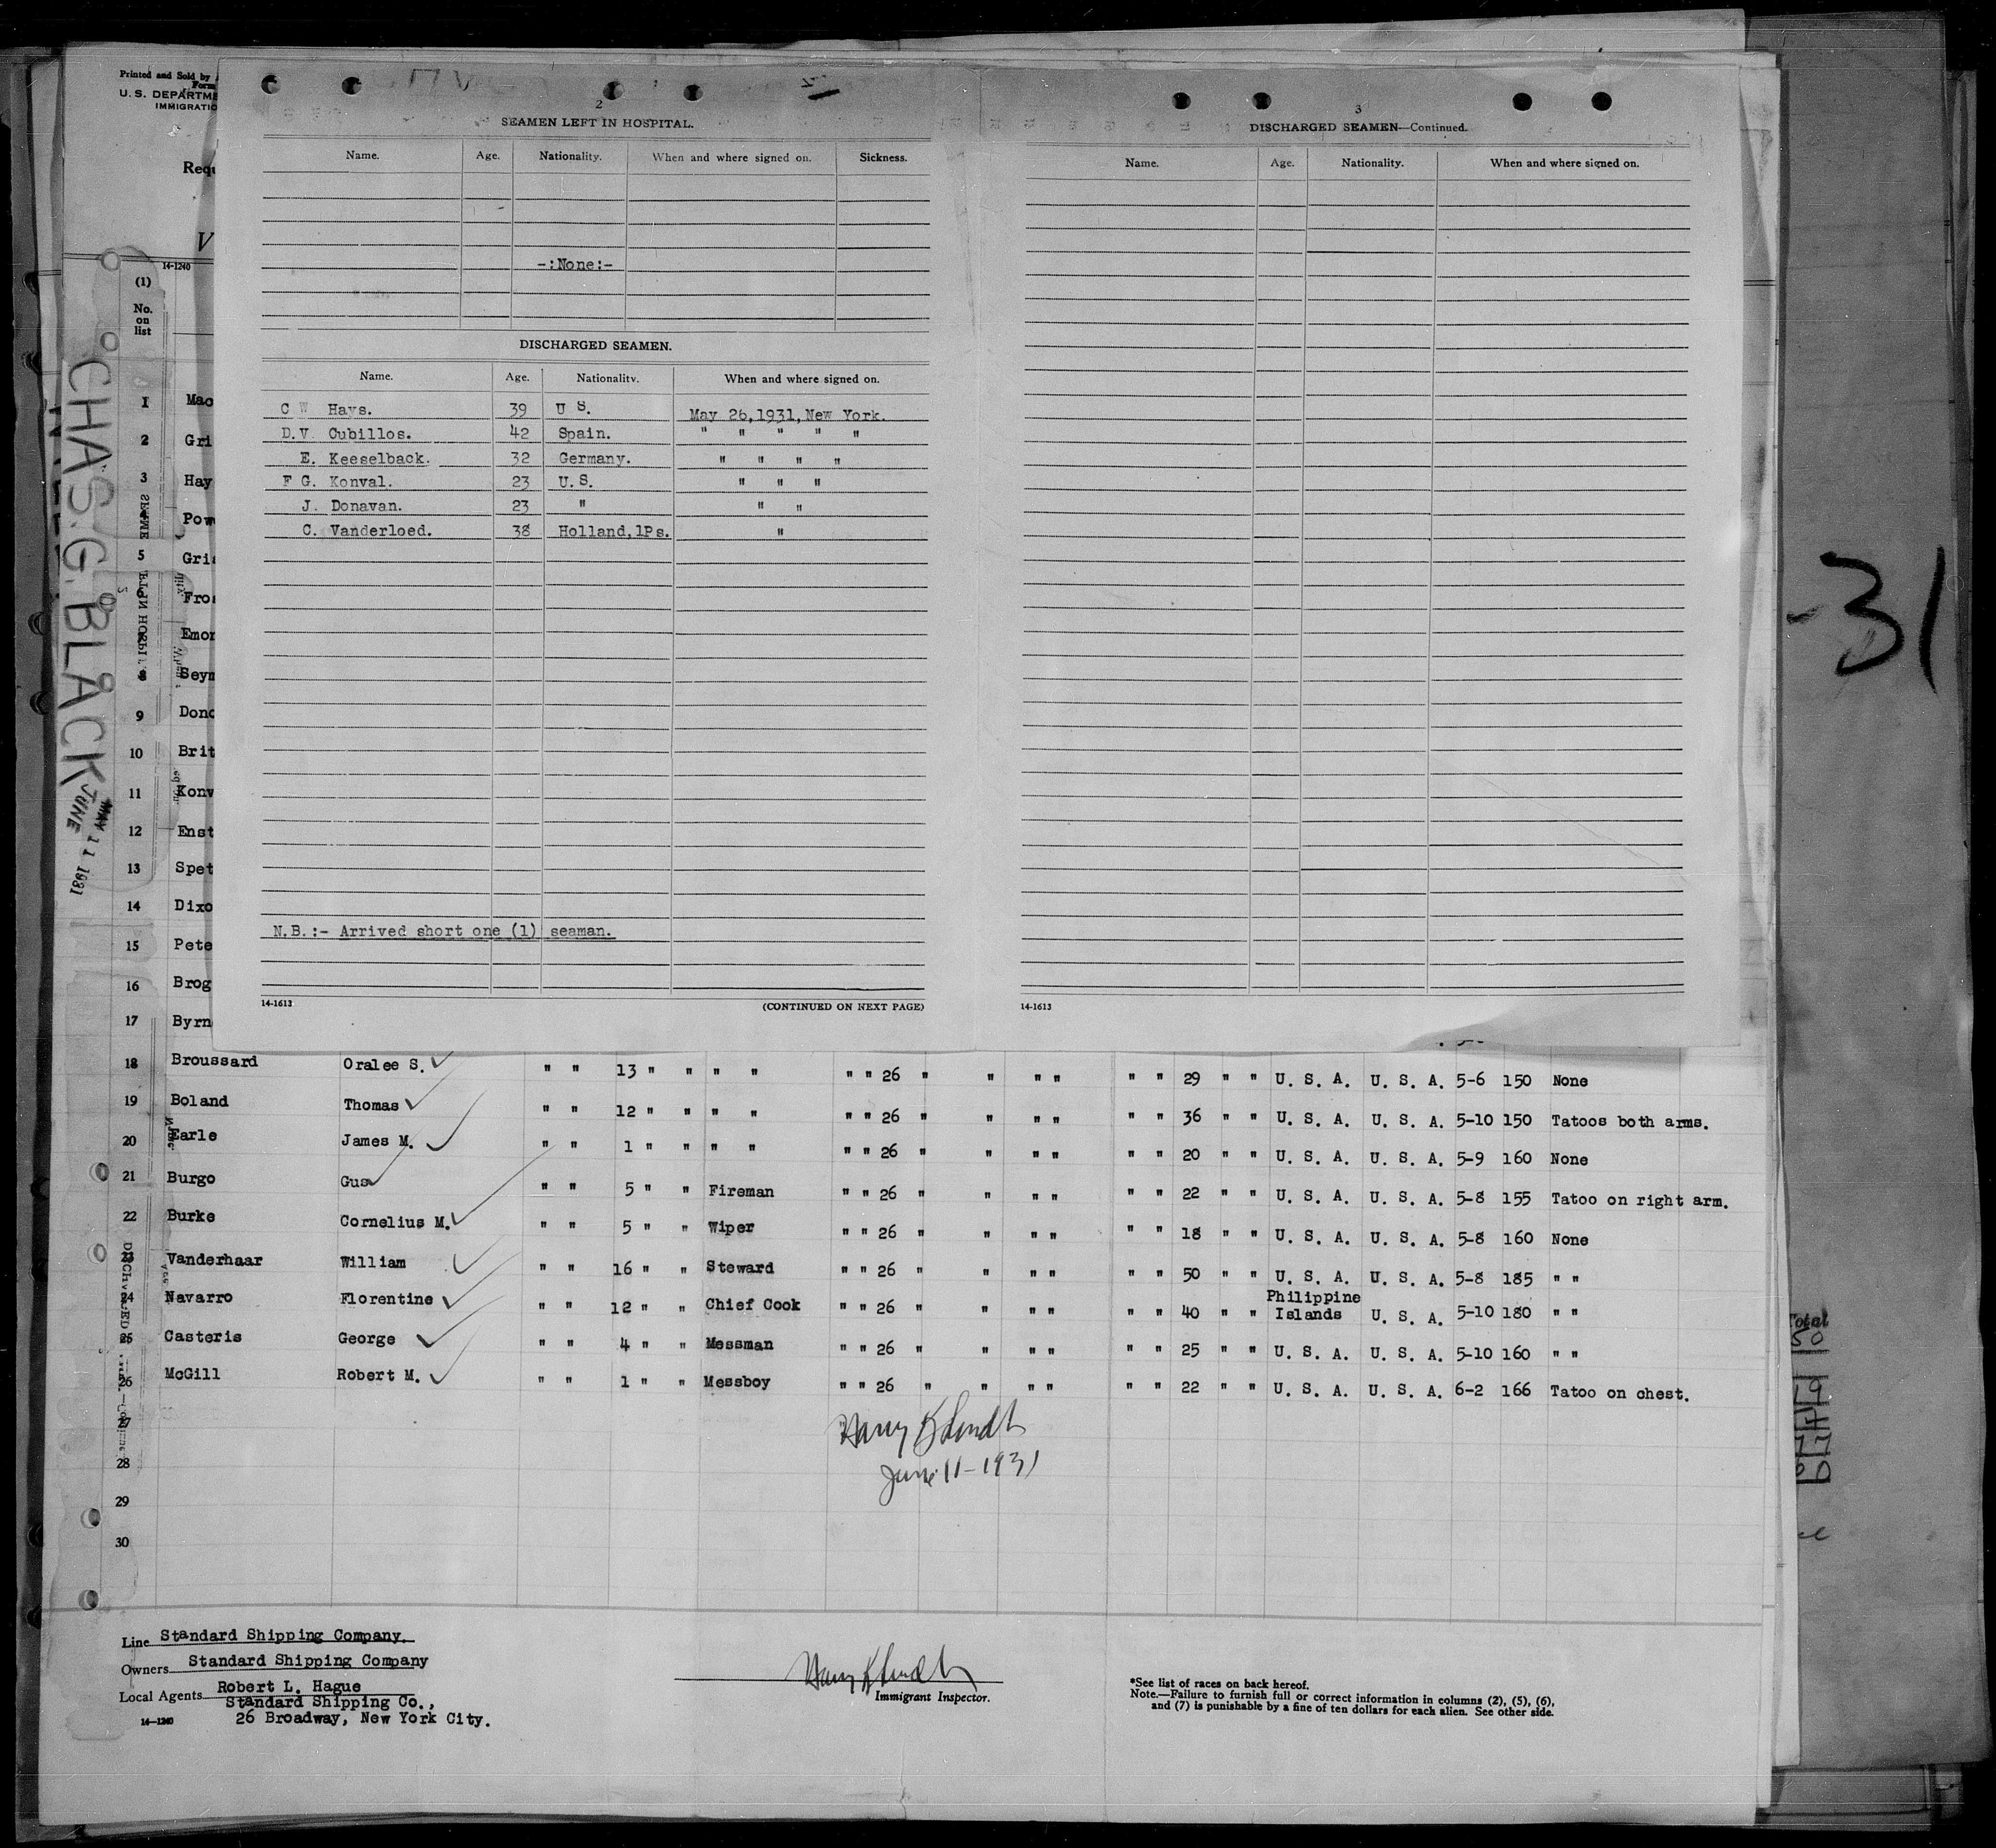 Printed and Sold by
Form
U. S. DEPARTME
IMMIGRATIO
Requ
V
14-1240
(1)
No.
on
list
CHAS. G. BLACK
JUNE 11 1931
2
SEAMEN LEFT IN HOSPITAL.
Name. Age. Nationality. When and where signed on. Sickness.
-:None:-
DISCHARGED SEAMEN.
Name. Age. Nationality. When and where signed on.
C W Hays. 39 U S. May 26,1931,New York.
D.V. Cubillos. 42 Spain. " " " " "
E. Keeselback. 32 Germany. " " " "
F G. Konval. 23 U.S. " " "
J. Donavan. 23 " " "
C. Vanderloed. 38 Holland,1Ps. "
N.B.:- Arrived short one (1) seaman.
14-1613 (CONTINUED ON NEXT PAGE)
3
DISCHARGED SEAMEN—Continued.
Name. Age. Nationality. When and where signed on.
14-1613
-31
1 Mac
2 Gri
3 Hay
Pow
5 Gri
Fro
Emor
8 Seym
9 Dono
10 Brit
11 Konv
12 Enst
13 Spet
14 Dixo
15 Pete
16 Brog
17 Byrn
18 Broussard Oralee S. " " 13 " " " " " " 26 " " " " " " 29 " " U. S. A. U. S. A. 5-6 150 None
19 Boland Thomas " " 12 " " " " " " 26 " " " " " " 36 " " U. S. A. U. S. A. 5-10 150 Tatoos both arms.
20 Earle James M. " " 1 " " " " " " 26 " " " " " " 20 " " U. S. A. U. S. A. 5-9 160 None
21 Burgo Gus " " 5 " " Fireman " " 26 " " " " " " 22 " " U. S. A. U. S. A. 5-8 155 Tatoo on right arm.
22 Burke Cornelius M. " " 5 " " Wiper " " 26 " " " " " " 18 " " U. S. A. U. S. A. 5-8 160 None
23 Vanderhaar William " " 16 " " Steward " " 26 " " " " " " 50 " " U. S. A. U. S. A. 5-8 185 " "
24 Navarro Florentine " " 12 " " Chief Cook " " 26 " " " " " " 40 " " Philippine Islands U. S. A. 5-10 180 " "
25 Casteris George " " 4 " " Messman " " 26 " " " " " " 25 " " U. S. A. U. S. A. 5-10 160 " "
26 McGill Robert M. " " 1 " " Messboy " " 26 " " " " " " 22 " " U. S. A. U. S. A. 6-2 166 Tatoo on chest.
27
28
29
30
Harry
June 11-1931
Line Standard Shipping Company.
Owners Standard Shipping Company
Local Agents Robert L. Hague
Standard Shipping Co.,
14-1240 26 Broadway, New York City.
Harry
Immigrant Inspector.
*See list of races on back hereof.
Note.—Failure to furnish full or correct information in columns (2), (5), (6),
and (7) is punishable by a fine of ten dollars for each alien. See other side.
Total